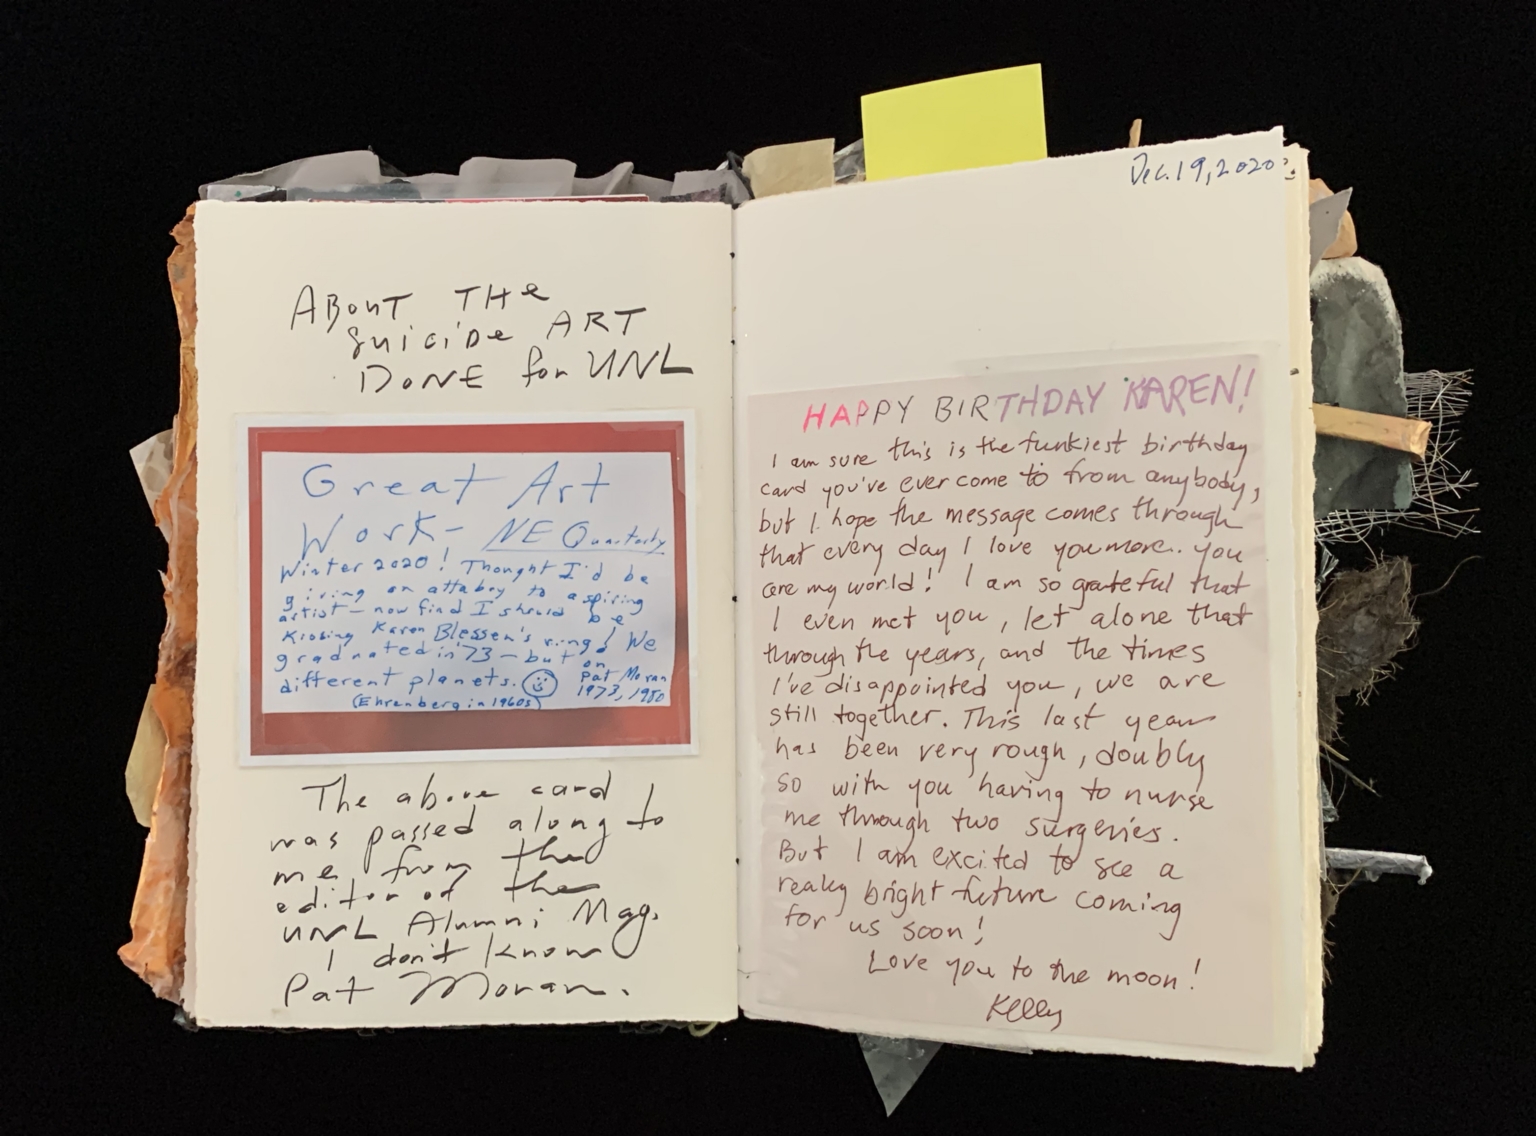 ABOUT THE
SUICIDE ART
DONE for UNL
Great Art
Work- NE Quarterly
Winter 2020! Thought I'd be
giving an attaboy to aspiring
artist - now find I should be
Kissing Karen Blessen's ring! We
graduated in '73 - but on
different planets. Pat Moran
(Ehrenberg in 1960s) 1973, 1980
The above card
was passed along to
me from the
editor of the
UNL Alumni Mag.
I don't know
Pat Moran.
Dec. 19, 2020
HAPPY BIRTHDAY KAREN!
I am sure this is the funkiest birthday
card you've ever come to from anybody,
but I hope the message comes through
that every day I love you more. you
are my world! I am so grateful that
I even met you, let alone that
through the years, and the times
I've disappointed you, we are
still together. This last year
has been very rough, doubly
so with you having to nurse
me through two surgeries.
But I am excited to see a
realy bright future coming
for us soon!
Love you to the moon!
Kelly